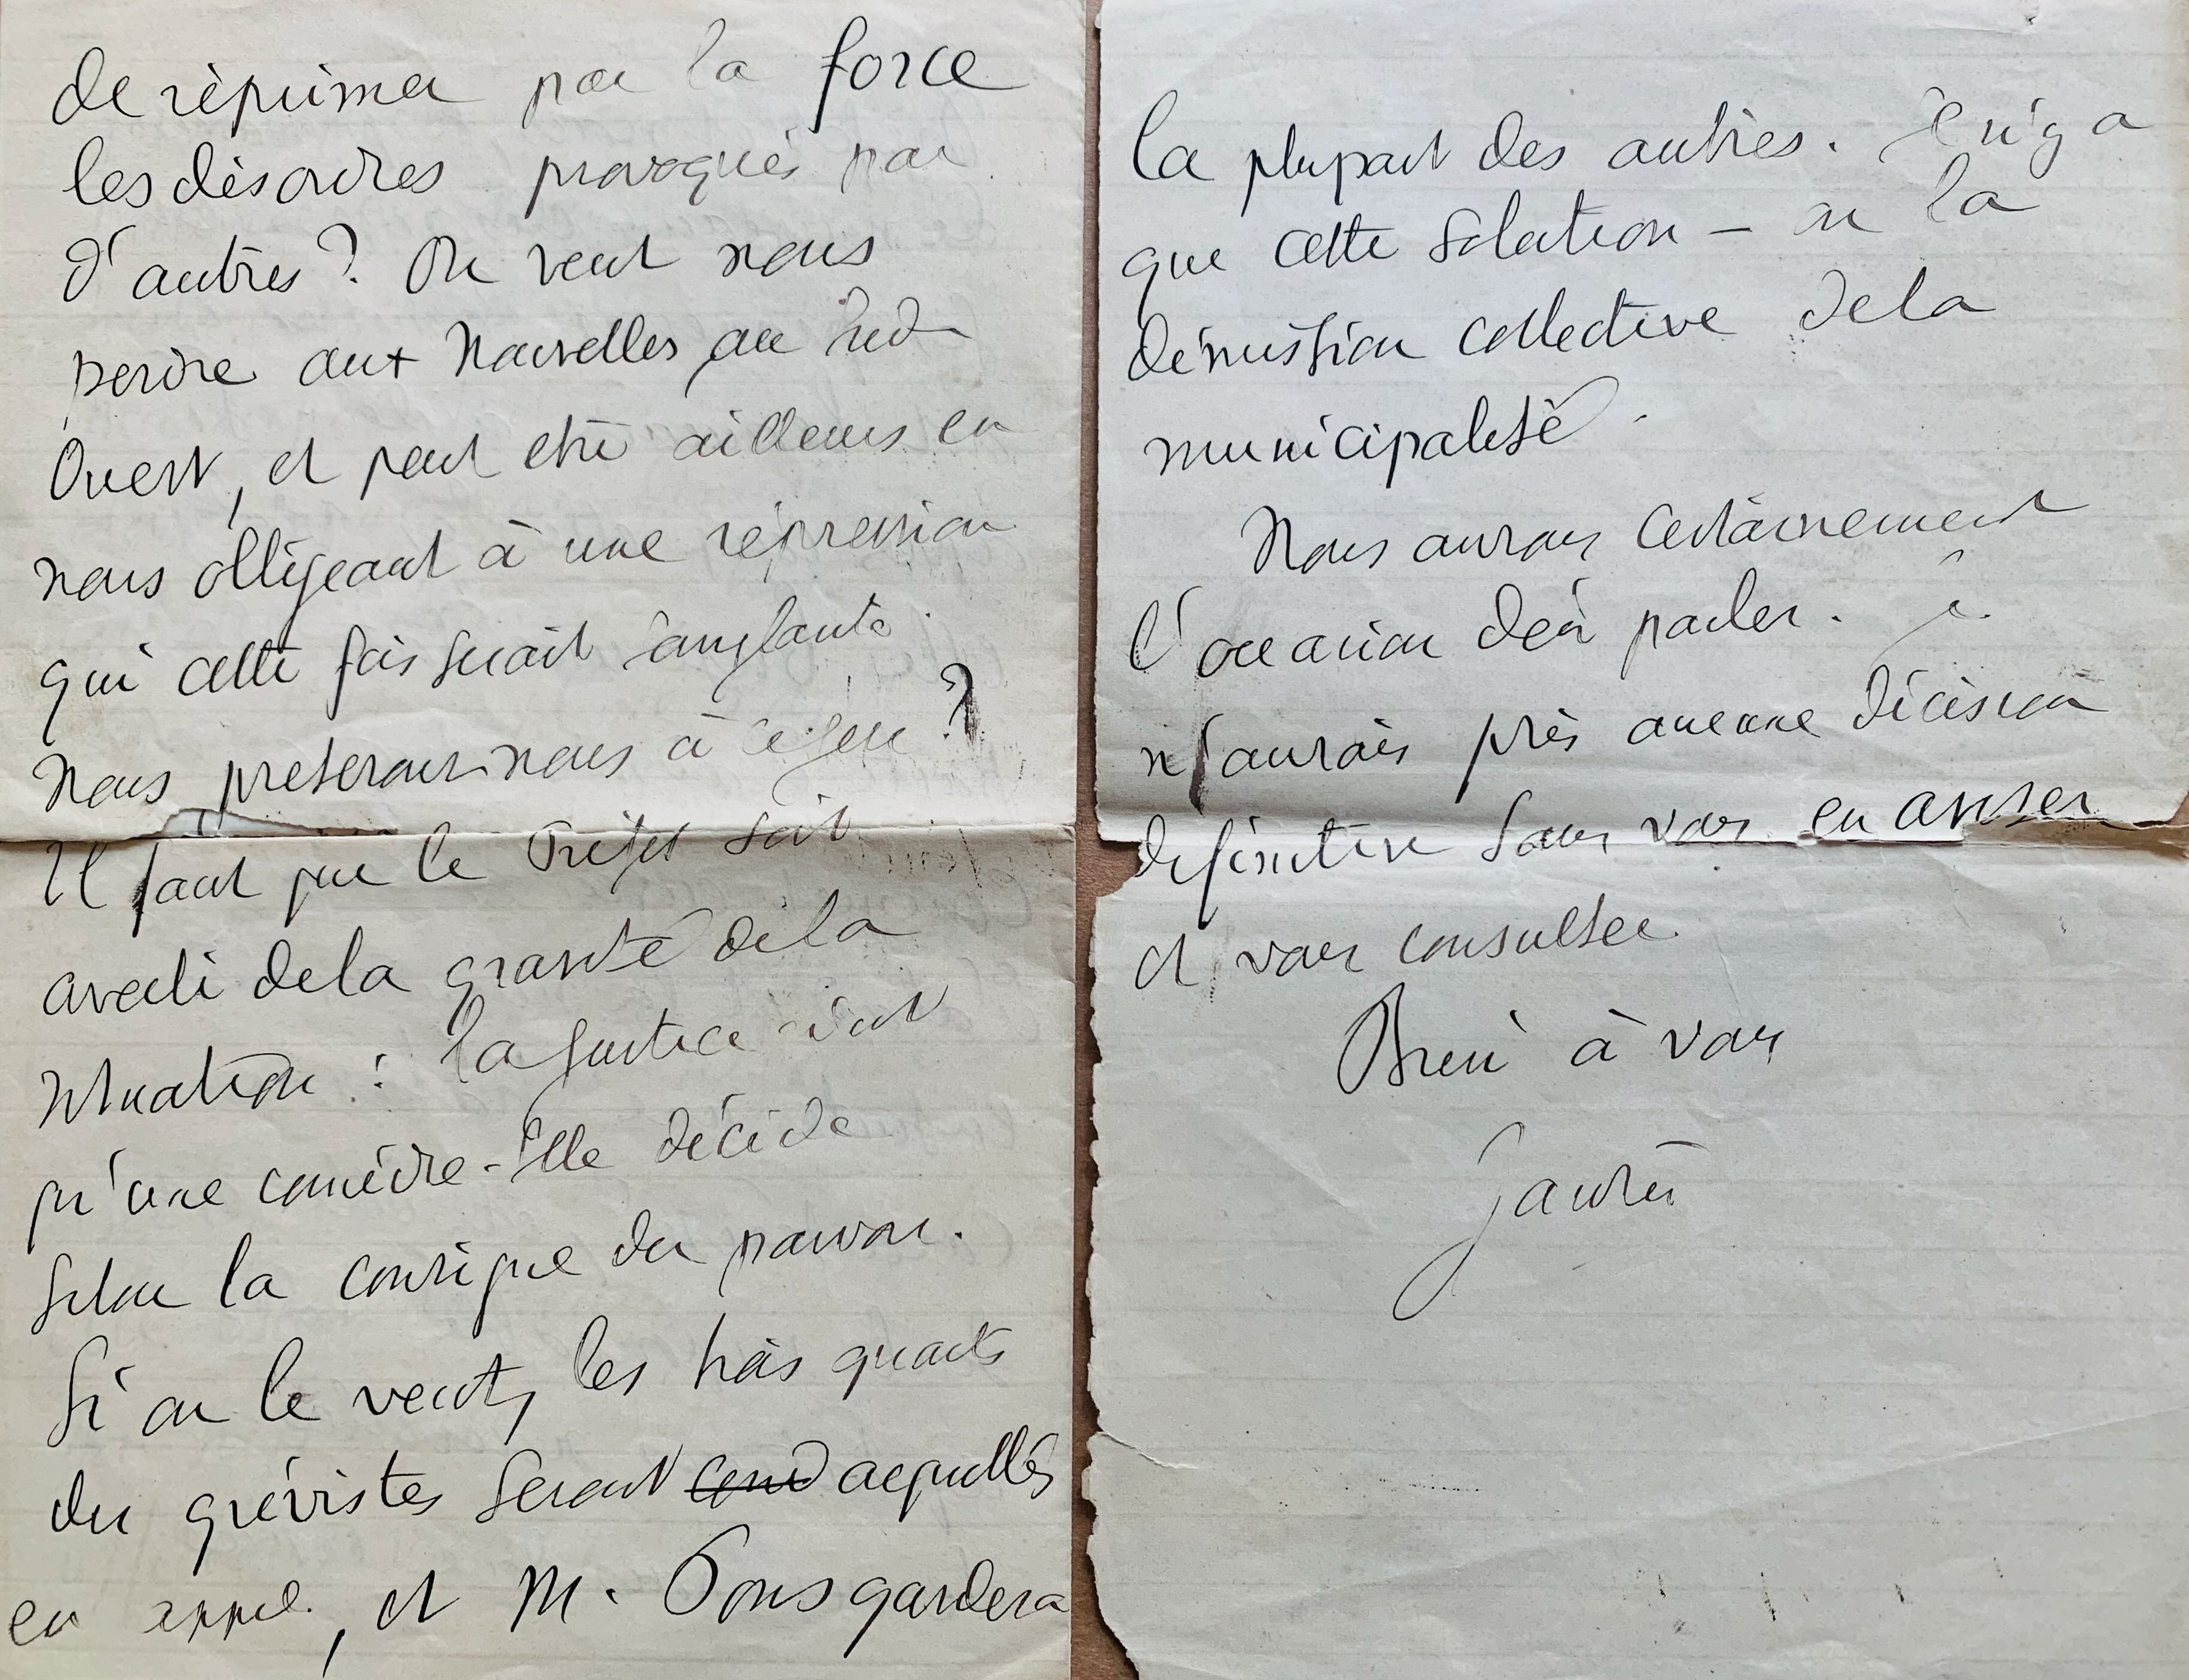 de réprimer par la force
les désordres provoqués par
d'autres ? On veut nous
perdre aux Nouvelles, au Sud
Ouest, et peut etre ailleurs en
nous obligeant à une répression
qui cette fois serait sanglante.
Nous preterons-nous à ce jeu ?
Il faut que le Préfet soit
averti de la gravité de la
situation : la justice n'est
qu'une comédie. Elle décide
selon la consigne du pouvoir.
Si on le veut, les trois quarts
des grévistes seront cond acquittés
en appel, et M. Pons gardera
la plupart des autres. Il n'y a
que cette solution — ou la
démission collective de la
municipalité.
Nous aurons certainement
l'occasion d'en parler. Je
n'aurais pris aucune décision
définitive sans vous en aviser
et vous consulter.
Bien à vous
Jaurès